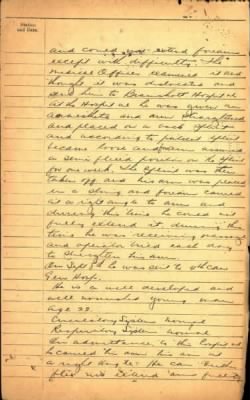 Station
and Date.
and could not extend forearm
except with difficulty. The
medical Officer examined it and
thought it was dislocated and
sent him to Bramshott Hospital
At the Hospital he was given an
anaesthetic and arm straightened
and placed on a splint
and according to patient splint
became loose and arm assumed
a semi flexed position on the splint
for one week. The splint was then
taken off and his arm was placed
in a sling and forearm carried
at a right angle to arm and
during this time he could not
fully extend it, during this
time he was receiving massage
and operator tried each day
to straighten his arm.
On Sept 8th he was sent to 4th Can
Gen Hosp.
He is a well developed and
well nourished young man
age 22.
Circulatory System normal
Respiratory System normal
On admittance to this Hospital
he carried his arm
a right angle. He can
flex and extend arm freely